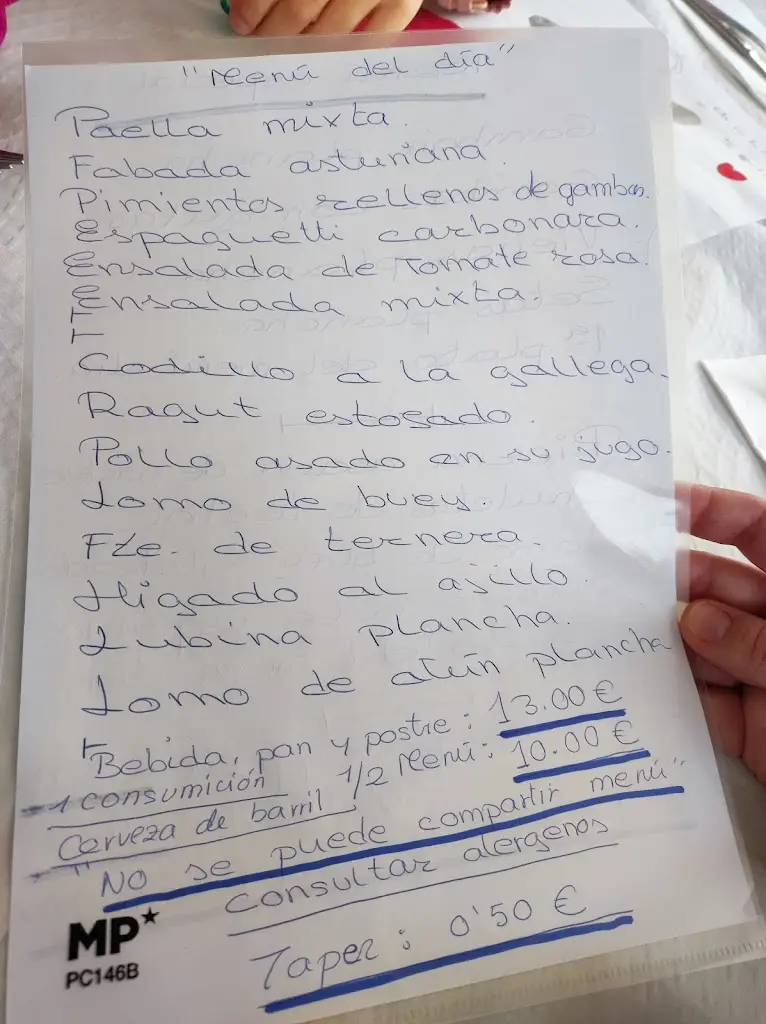 "Menú del día"
Paella mixta.
Fabada asturiana.
Pimientos rellenos de gambas.
Espaguetti carbonara.
Ensalada de Tomate rosa.
Ensalada mixta.
Codillo a la gallega.
Ragut estosado.
Pollo asado en su jugo.
Lomo de buey.
Fte. de ternera.
Hígado al ajillo.
Lubina plancha.
Lomo de atún plancha
Bebida, pan y postre: 13.00 €
- 1 consumición 1/2 Menú: 10.00 €
Cerveza de barril
"No se puede compartir menú"
Consultar alergenos
Taper: 0'50 €
MP★
PC146B